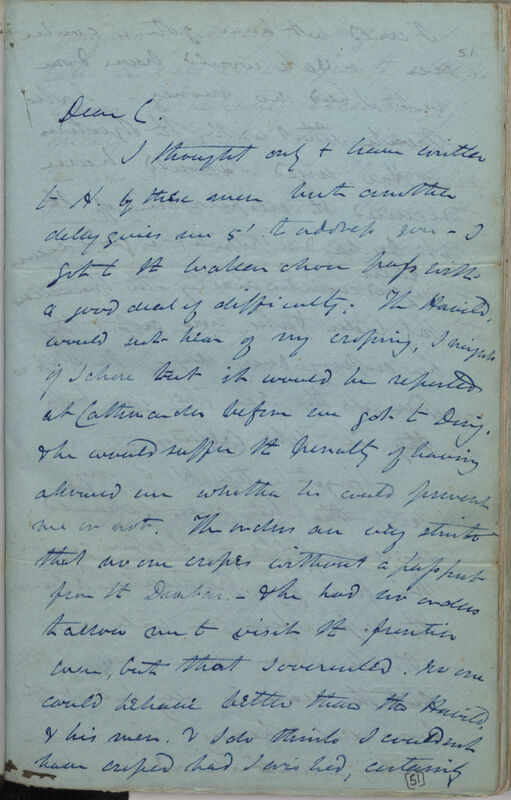 51
Dear C.
I thought only to have written
to H. by these men but another
delay gives me 5' to address you - I
got to the Wallanchoon pass with
a good deal of difficulty: The Havild.
would not hear of my crossing, I might
if I chose but it would be reported
at Cathmandu before we got to Dinj.
& he would suffer the penalty of having
allowed me whether he could prevent
me or not. The orders are very strict
that no one crosses without a passport
from the Durbar. - & he had no orders
to allow me to visit the frontier
even, but that I overruled. no one
could behave better than the Havild.
& his men. & I do think I could not
have crossed had I wished, certainly
[51]